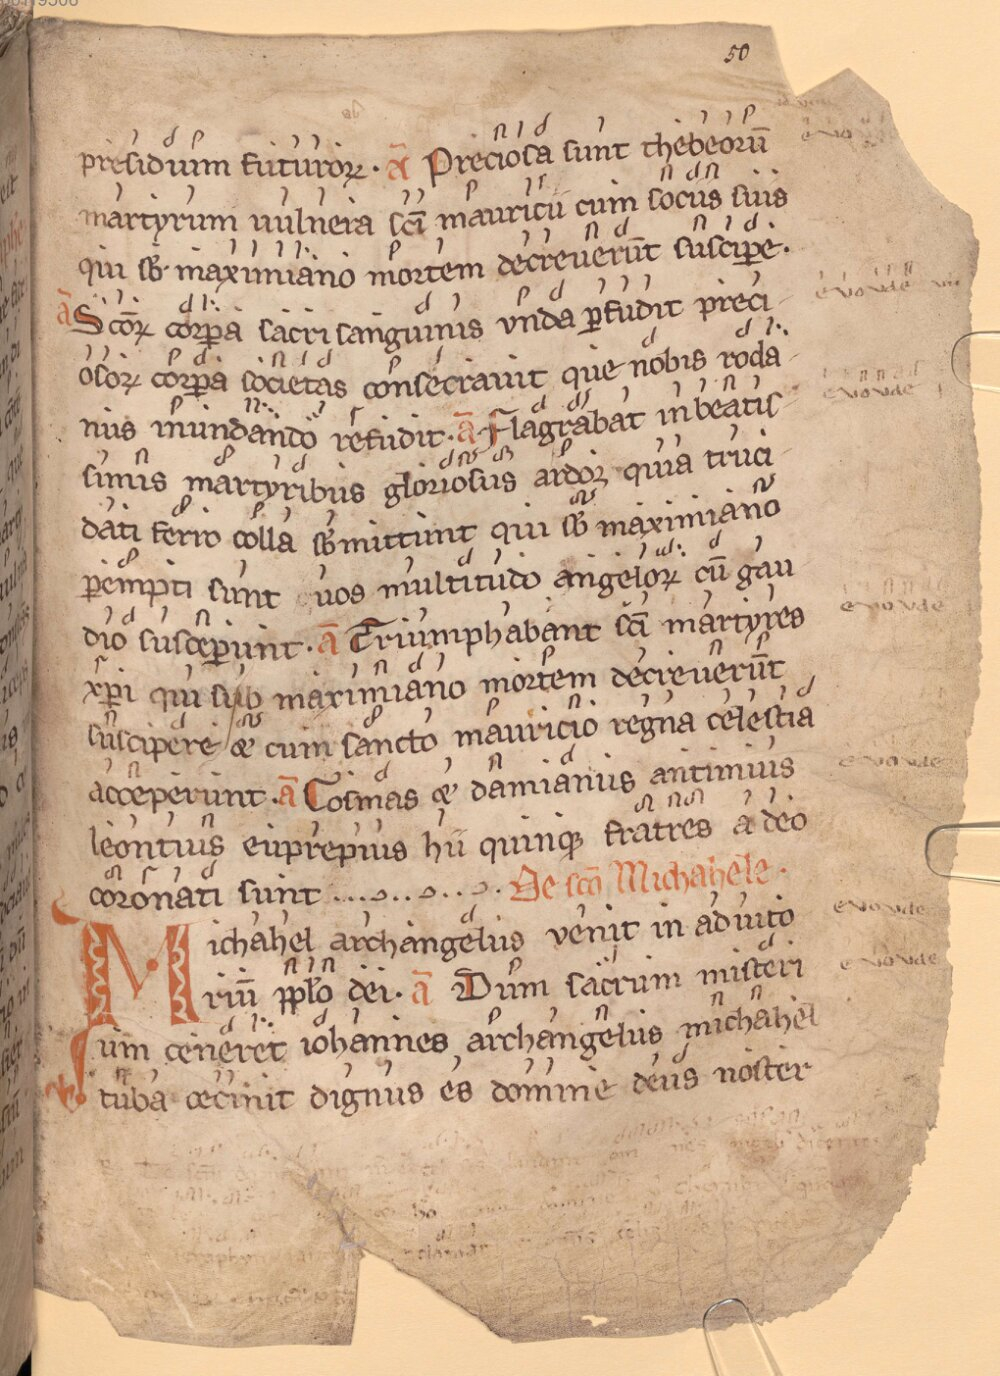 50
presidium futuroꝝ · a̅ Preciosa sunt thebeoru̅
martyrum uulnera sc̅i mauricii cum sociis suis
qui sb̅ maximiano mortem decreuerūt suscipe ·
a̅ Sc̅oꝝ corꝑa sacri sanguinis vnda ꝑfudit preci
osoꝝ corꝑa societas consecrauit que nobis roda
nus inundando refudit · a̅ Flagrabat in beatis
simis martyribus gloriosus ardoꝝ quia truci
dati ferro colla sb̅mittunt qui sb̅ maximiano
ꝑempti sunt uos multitudo angeloꝝ cū gau
dio susceꝑunt · a̅ Triumphabant sc̅i martyres
xp̅i qui sub maximiano mortem decreuerūt
suscipere & cum sancto mauricio regna celestia
acceperunt · a̅ Cosmas & damianus antimus
leontius euprepius hii quinqꝫ fratres a deo
coronati sunt De sc̅o Michahele ·
Michahel archangelus venit in adiuto
riū pp̅lo dei · a̅ Dum sacrum misteri
um cerneret iohannes archangelus michahel
tuba cecinit dignus es domine deus noster